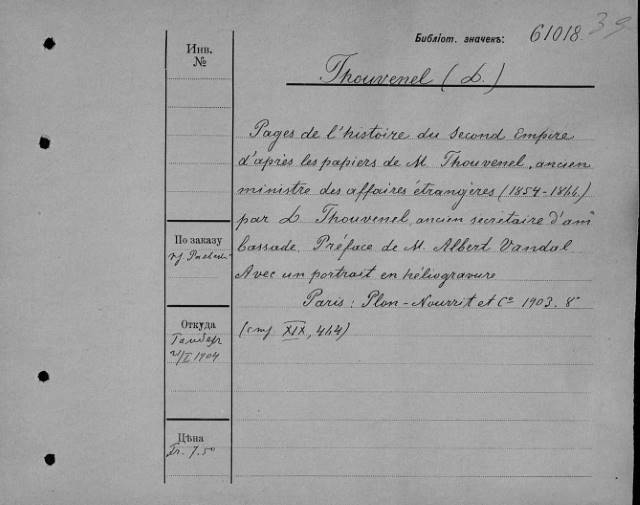 Библіот. значекъ: 61018. 39
Инв.
№
Thouvenel (L.)
Pages de l'histoire du Second Empire
d'après les papiers de M. Thouvenel, ancien
ministre des affaires étrangères (1854-1866)
par L. Thouvenel, ancien secrétaire d'am
bassade. Préface de M. Albert Vandal
Avec un portrait en héliogravure
Paris: Plon-Nourrit et Cⁱᵉ 1903. 8°
(стр XIX, 464)
По заказу
Откуда
I 1904
Цѣна
Fr. 7.50